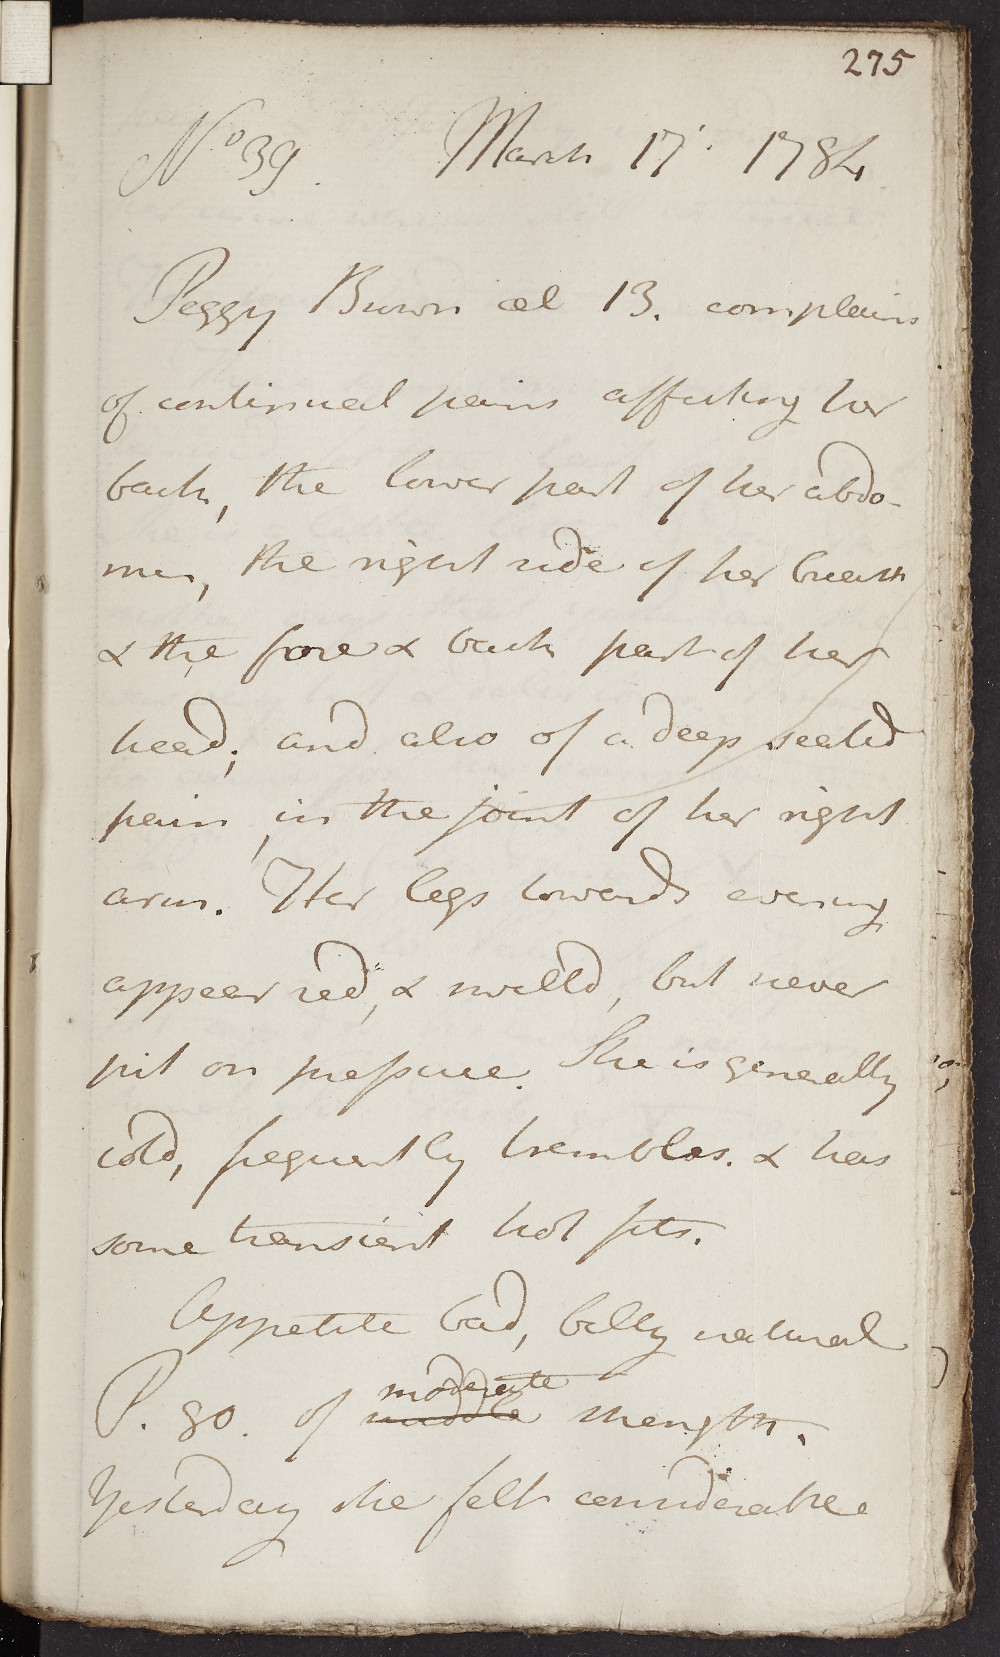 275
No 39. March 17. 1784
Peggy Brown æt 13. complains
of continual pains affecting her
back, the lower part of her abdo-
men, the right side of her breast
& the fore & back part of her
head; and also of a deep seated
pain, in the joint of her right
arm. Her legs towards evening
appear red, & swelld, but never
pit on pressure. She is generally
cold, frequently trembles. & has
some transient hot fits.
Appetite bad, belly natural
moderate
P. 80. of middle strength.
Yesterday she felt considerable